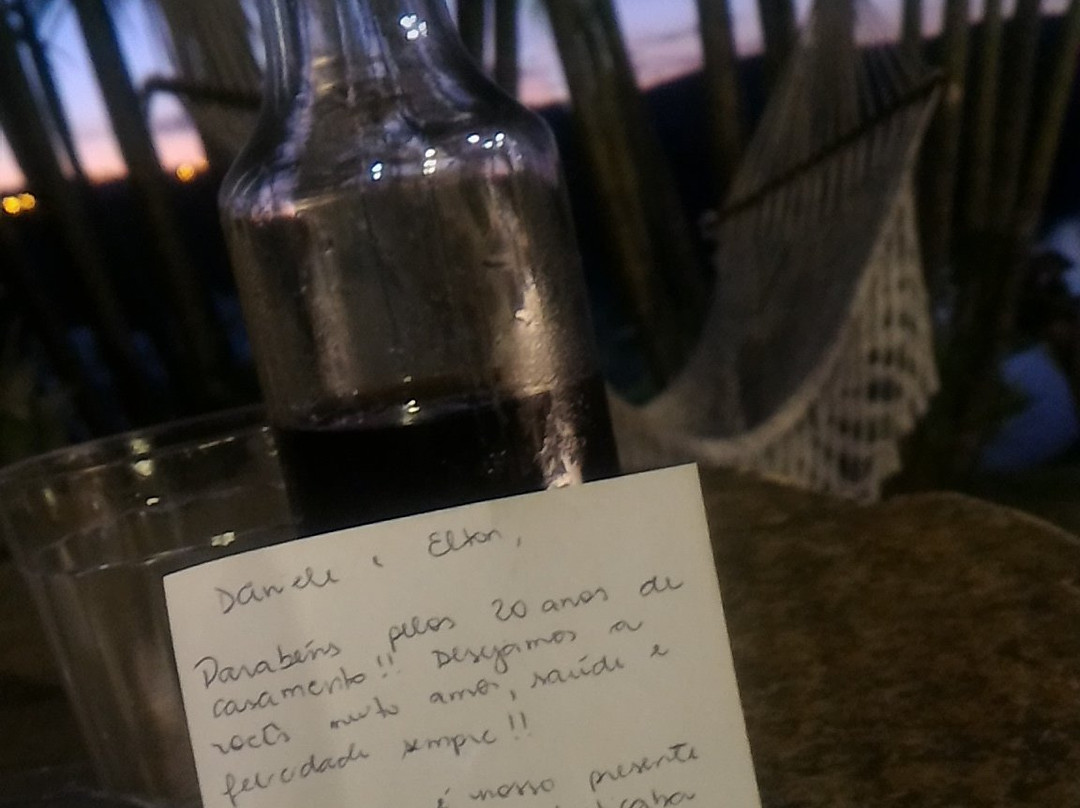 Daniele e Elton,
Parabéns pelos 20 anos de
casamento!! Desejamos a
vocês muito amor, saúde e
felicidade sempre!!
é nosso presente